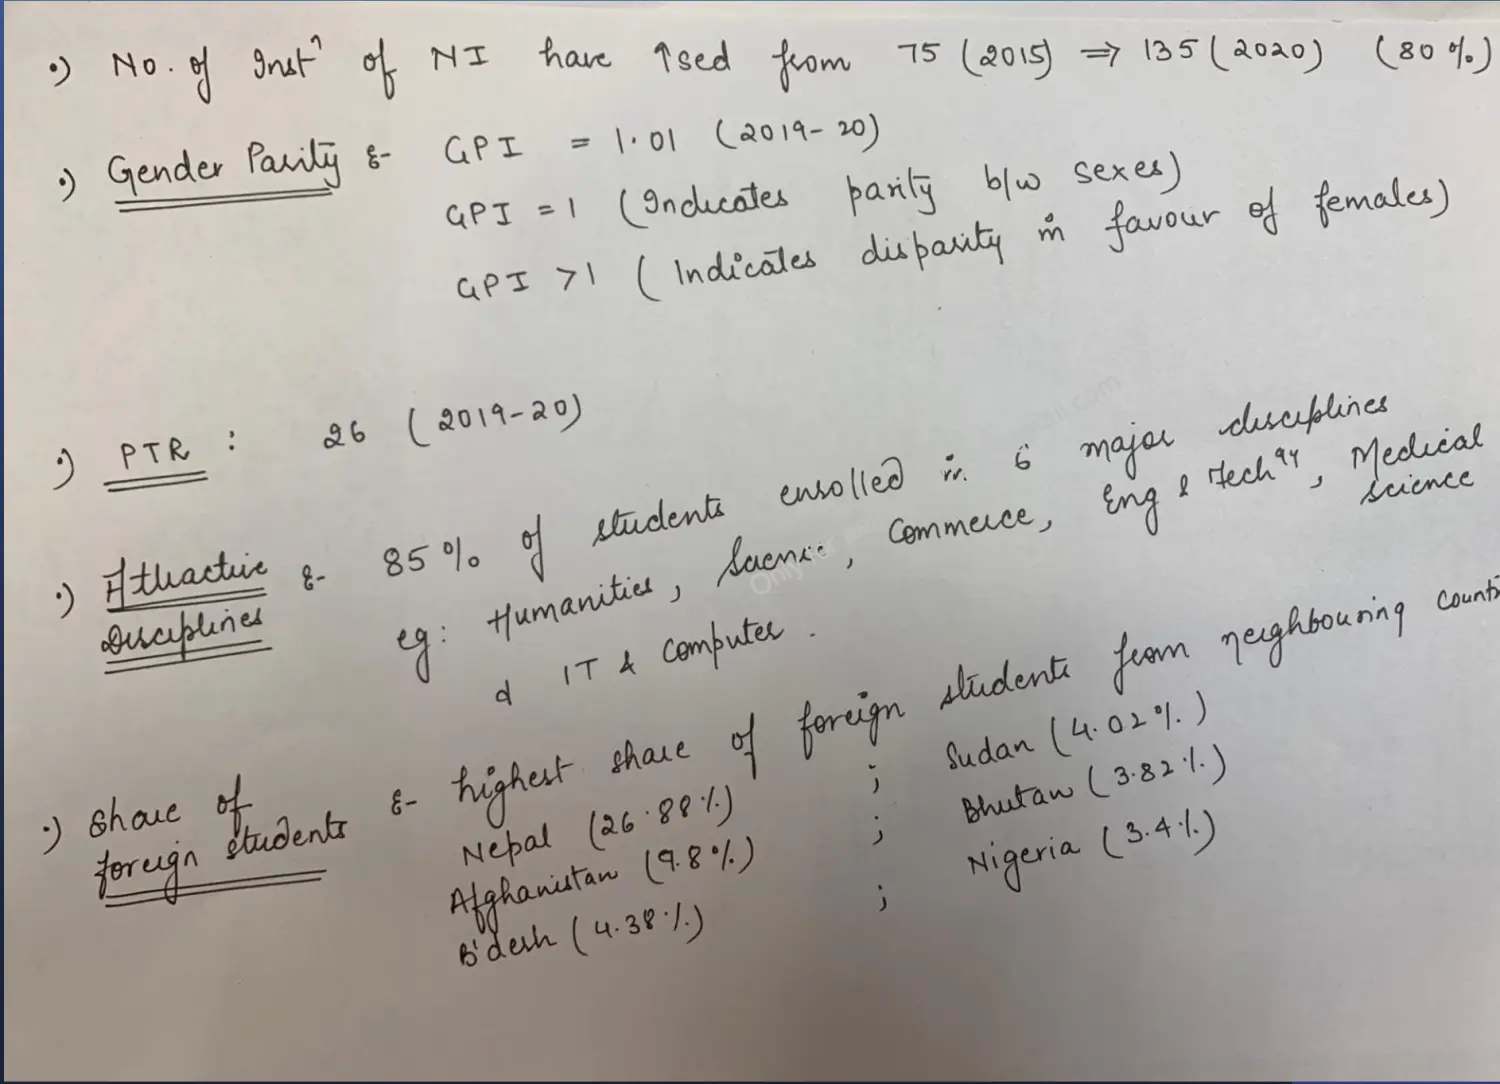 •) No. of Instⁿ of NI have ↑sed from 75 (2015) ⇒ 135 (2020) (80%)
•) Gender Parity :- GPI = 1.01 (2019-20)
GPI = 1 (Indicates parity b/w sexes)
GPI > 1 (Indicates disparity in favour of females)
•) PTR : 26 (2019-20)
•) Attractive Disciplines :- 85% of students enrolled in 6 major disciplines
eg: Humanities, Science, Commerce, Eng & Techⁿᵍʸ, Medical science
& IT & Computer.
•) Share of foreign students :- highest share of foreign students from neighbouring countri
Nepal (26.88%) ; Sudan (4.02%)
Afghanistan (9.8%) ; Bhutan (3.82%)
B'desh (4.38%) ; Nigeria (3.4%)